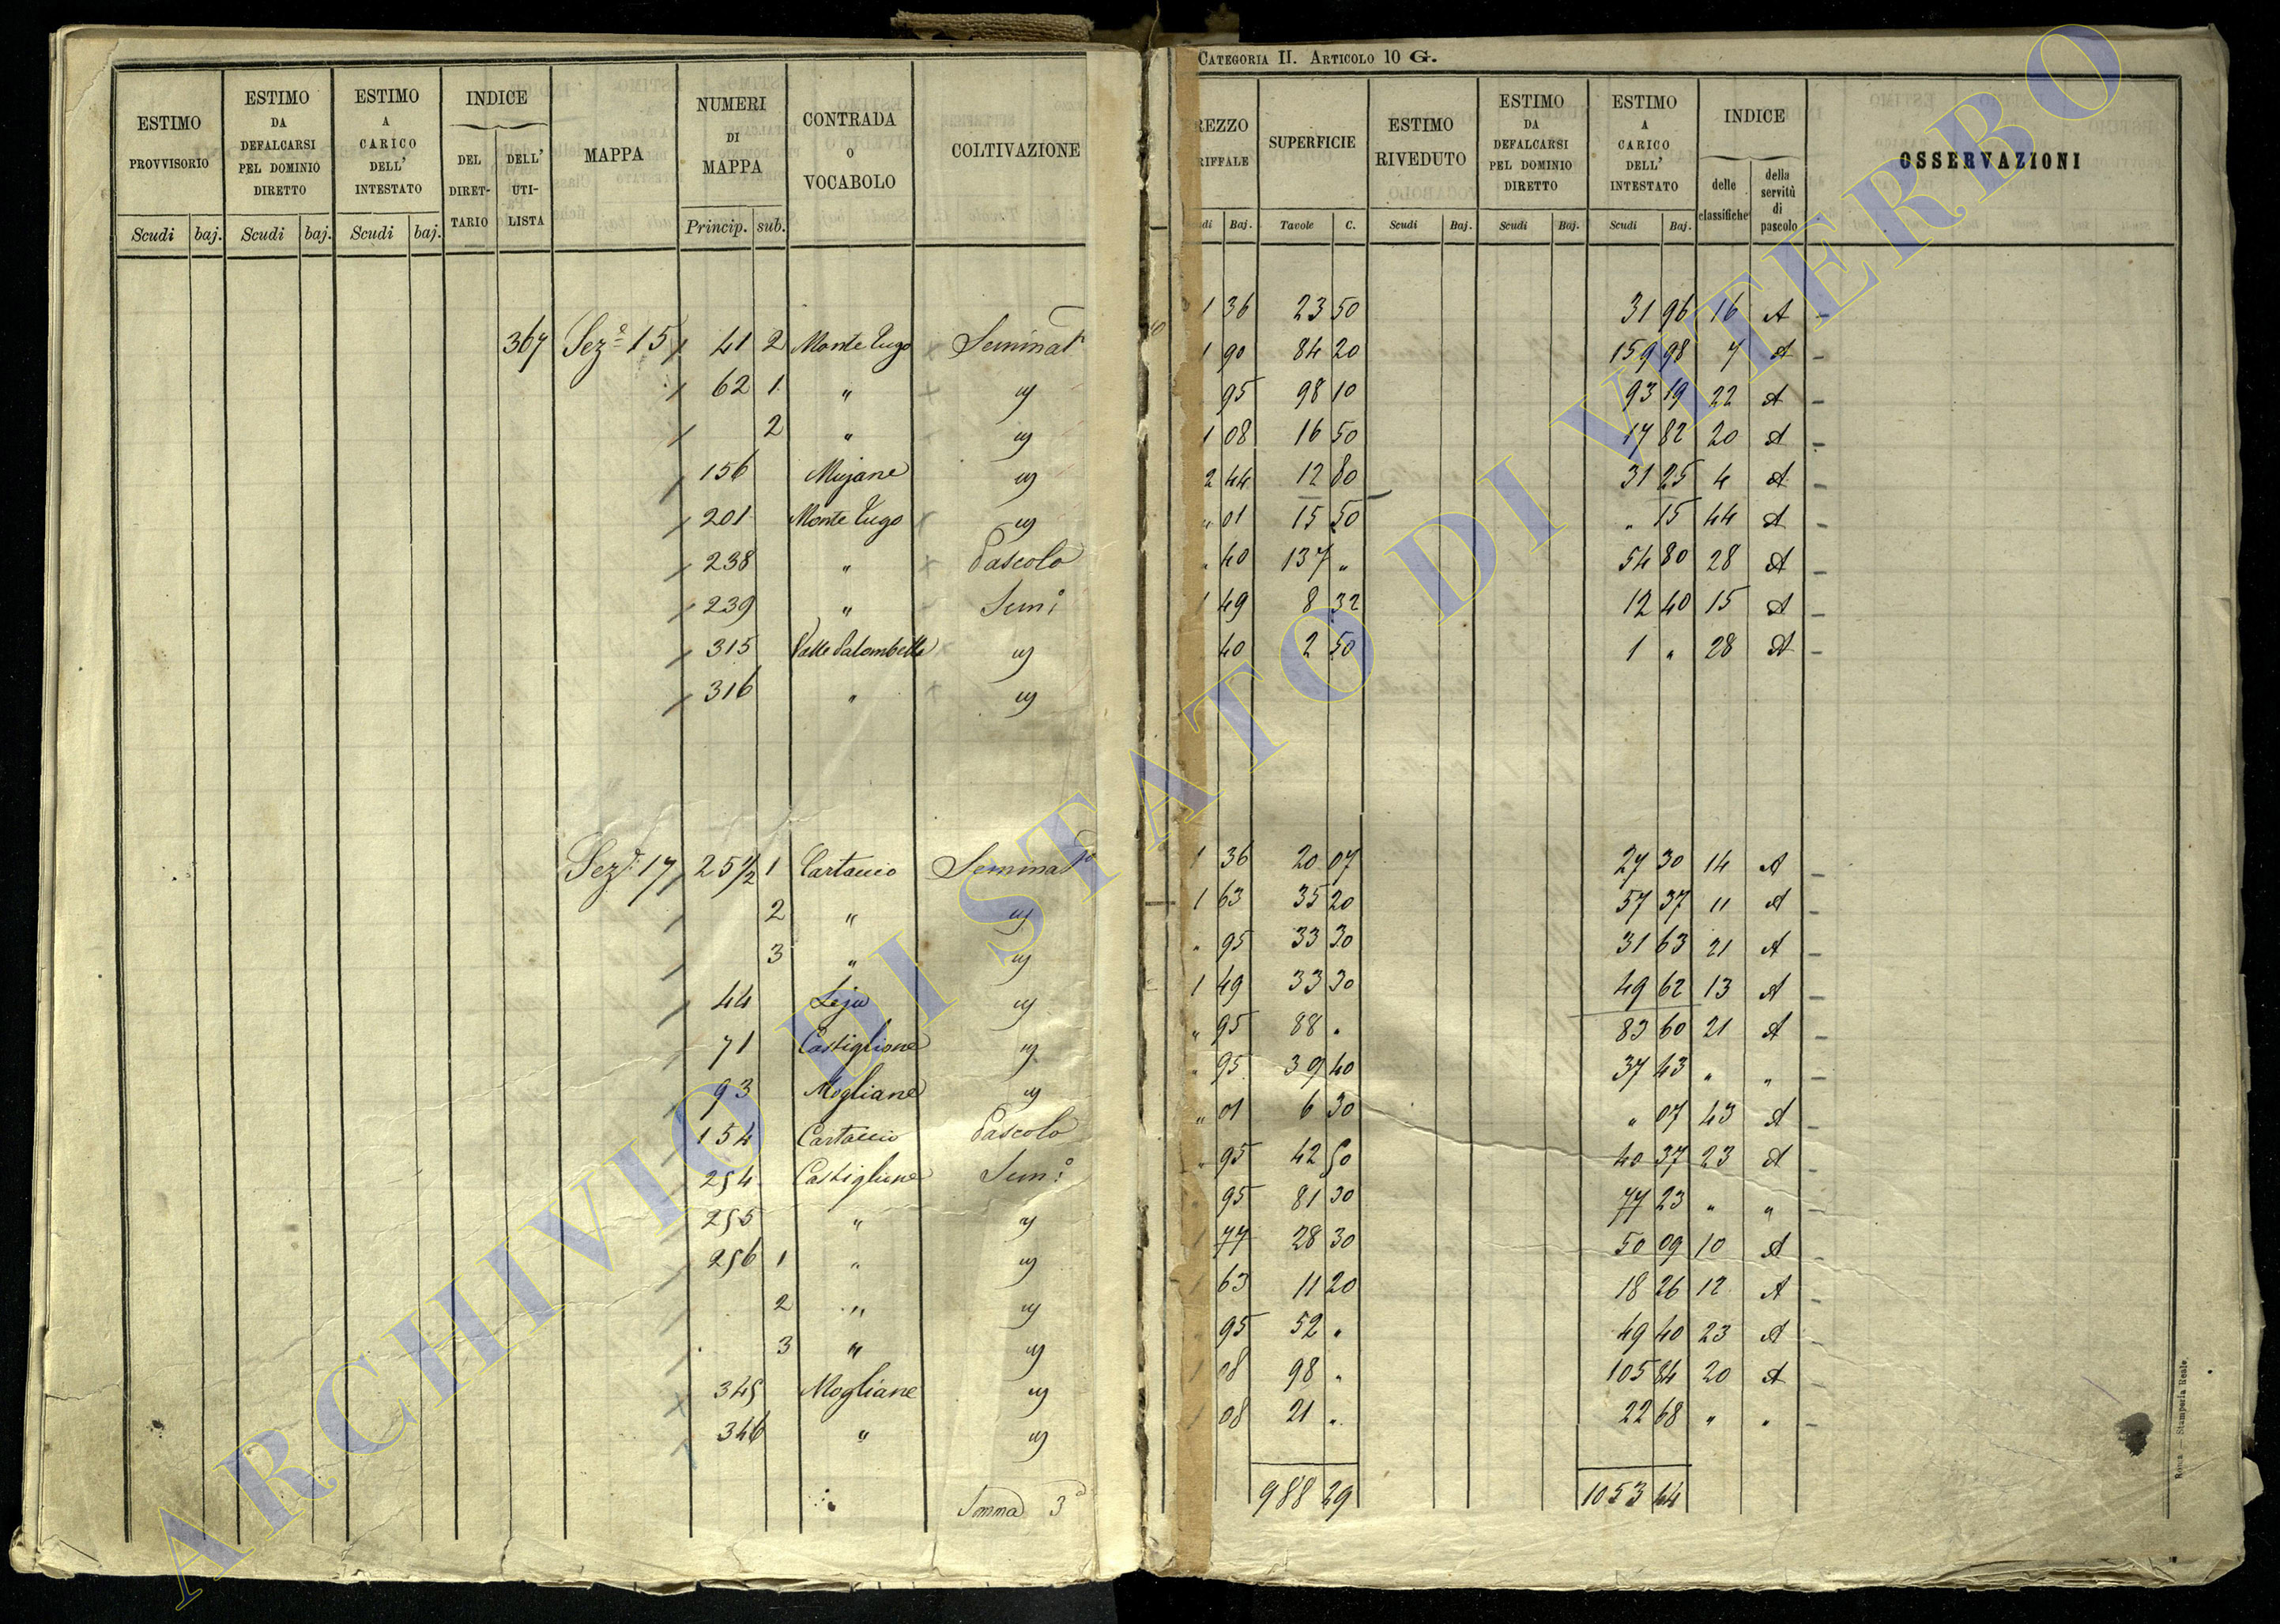 ESTIMO PROVVISORIO
ESTIMO DA DEFALCARSI PEL DOMINIO DIRETTO
ESTIMO A CARICO DELL' INTESTATO
INDICE
DEL DIRETTARIO
DELL' UTILISTA
MAPPA
NUMERI DI MAPPA
CONTRADA O VOCABOLO
COLTIVAZIONE
Scudi baj. Scudi baj. Scudi baj. Princip. sub.
367 Sez.e 15 41 2 Monte Lugo Seminat.o
62 1 " "
2 " "
156 Mujane "
201 Monte Lugo "
238 " Pascolo
239 " Sem:o
315 Valle Palombella "
316 " "
Sez.e 17 25 1/2 1 Cartaccio Seminat.o
2 " "
3 " "
44 Leja "
71 Castiglione "
93 Mogliane "
154 Cartaccio Pascolo
254 Castiglione Sem:o
255 " "
256 1 " "
2 " "
3 " "
345 Mogliane "
346 " "
Somma 3a
CATEGORIA II. ARTICOLO 10 G.
REZZO RIFFALE
SUPERFICIE
ESTIMO RIVEDUTO
ESTIMO DA DEFALCARSI PEL DOMINIO DIRETTO
ESTIMO A CARICO DELL' INTESTATO
INDICE
delle classifiche
della servitù di pascolo
OSSERVAZIONI
di Baj. Tavole C. Scudi Baj. Scudi Baj. Scudi Baj.
1 36 23 50 31 96 16 A –
1 90 84 20 159 98 7 A –
95 98 10 93 19 22 A –
1 08 16 50 17 82 20 A –
2 44 12 80 31 25 4 A –
" 01 15 50 " 15 44 A –
" 40 137 " 54 80 28 A –
1 49 8 32 12 40 15 A –
40 2 50 1 " 28 A –
1 36 20 07 27 30 14 A –
1 63 35 20 57 37 11 A –
" 95 33 30 31 63 21 A –
1 49 33 30 49 62 13 A –
" 95 88 " 83 60 21 A –
" 95 39 40 37 43 " " –
" 01 6 30 " 07 43 A –
" 95 42 50 40 37 23 A –
95 81 30 77 23 " " –
1 77 28 30 50 09 10 A –
1 63 11 20 18 26 12 A –
95 52 " 49 40 23 A –
1 08 98 " 105 84 20 A –
1 08 21 " 22 68 " " –
988 29 1053 44
Roma — Stamperia Reale.
ARCHIVIO DI STATO DI VITERBO